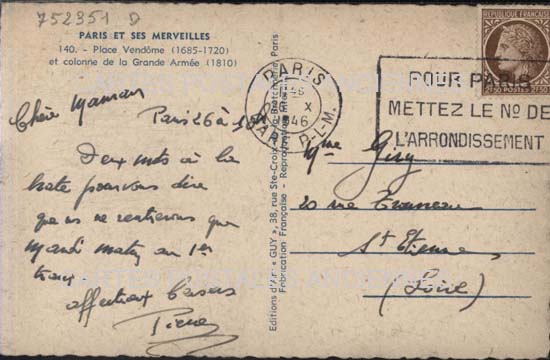 752351 D
PARIS ET SES MERVEILLES
140. - Place Vendôme (1685-1720)
et colonne de la Grande Armée (1810)
Chère Maman
Paris 26 à
Deux mots à la
hate pour vous dire
que ns ne rentrerons que
Mardi matin au 1er
affectueux baisers
Pierre
Editions d'Art « GUY », 38, rue Ste-Croix-la-Bretonnerie, Paris
Fabrication Française - Reproduction Interdite
PARIS
X
1946
GARE P.-L.-M.
POUR PARIS
METTEZ LE No DE
L'ARRONDISSEMENT
RÉPUBLIQUE FRANÇAISE
2f50 POSTES 2f50
Mme Giry
20 rue
St Etienne
(Loire)